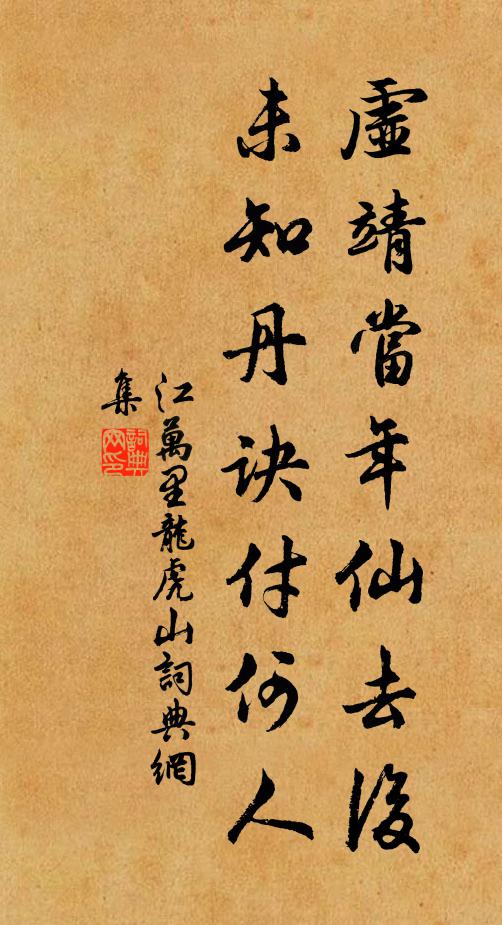 虛靖當年仙去後
未知丹訣付何人
江萬里龍虎山詞典網
集
詞典
网印